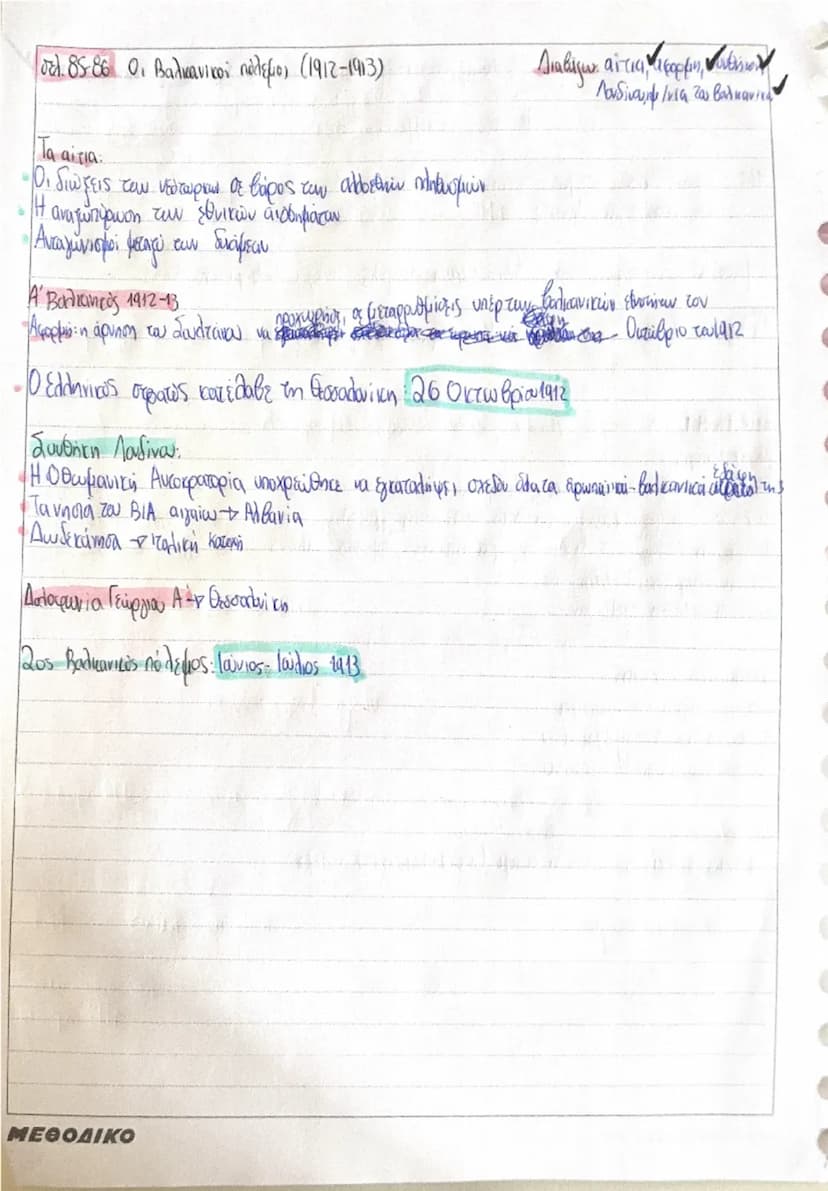 σελ. 85-86 Οι Βαλκανικοί πόλεμοι (1912-1913)
Διαβάζω: αίτια, αφορμή, συνθήκη
Λονδίνου, για τα Βαλκανικά
Τα αίτια:
Οι διώξεις των νεότουρκων σε βάρος των αλλοεθνών πληθυσμών
Η αναζωπύρωση των εθνικών αισθημάτων
Ανταγωνισμοί μεταξύ των δυνάμεων
Α' Βαλκανικός 1912-13
Αφορμή: η άρνηση του Σουλτάνου να προχωρήσει σε μεταρρυθμίσεις υπέρ των βαλκανικών εθνοτήτων τον
Οκτώβριο του 1912
Ο Ελληνικός στρατός κατέλαβε τη Θεσσαλονίκη: 26 Οκτωβρίου 1912
Συνθήκη Λονδίνου:
Η Οθωμανική Αυτοκρατορία υποχρεώθηκε να εγκαταλείψει σχεδόν όλα τα ευρωπαϊκά-βαλκανικά εδάφη της
Τα νησιά του ΒΙΑ αιγαίου → Αλβανία
Δωδεκάνησα → Ιταλική Κατοχή
Δολοφονία Γεώργιου Α' → Θεσσαλονίκη
2ος Βαλκανικός πόλεμος: Ιούνιος-Ιούλιος 1913
ΜΕΘΟΔΙΚΟ